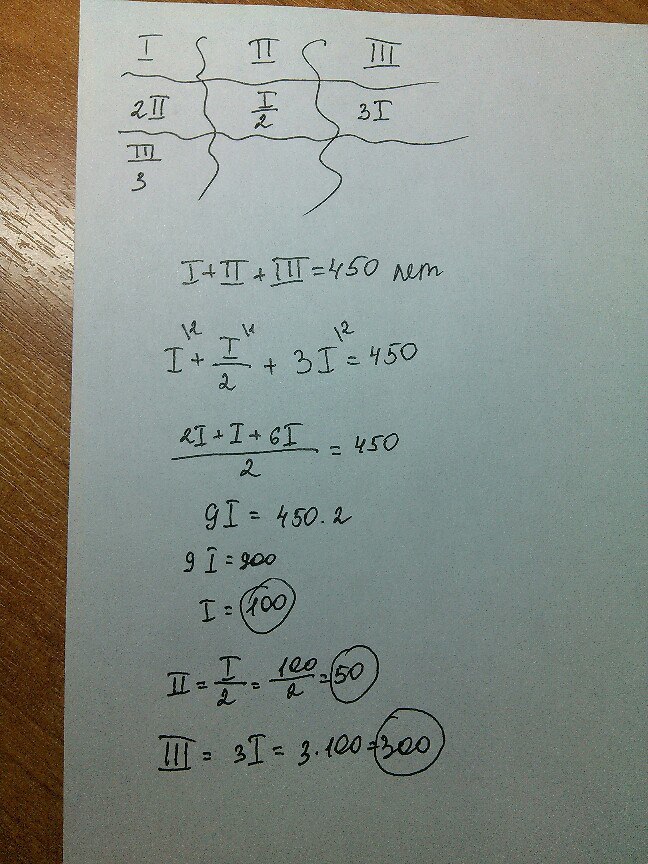 I II III
2II I/2 3I
III/3
I+II+III=450 лет
I\2 + I/2\1 + 3I\2 = 450
2I+I+6I/2 = 450
9I = 450·2
9I = 900
I = 100
II = I/2 = 100/2 = 50
III = 3I = 3·100=300